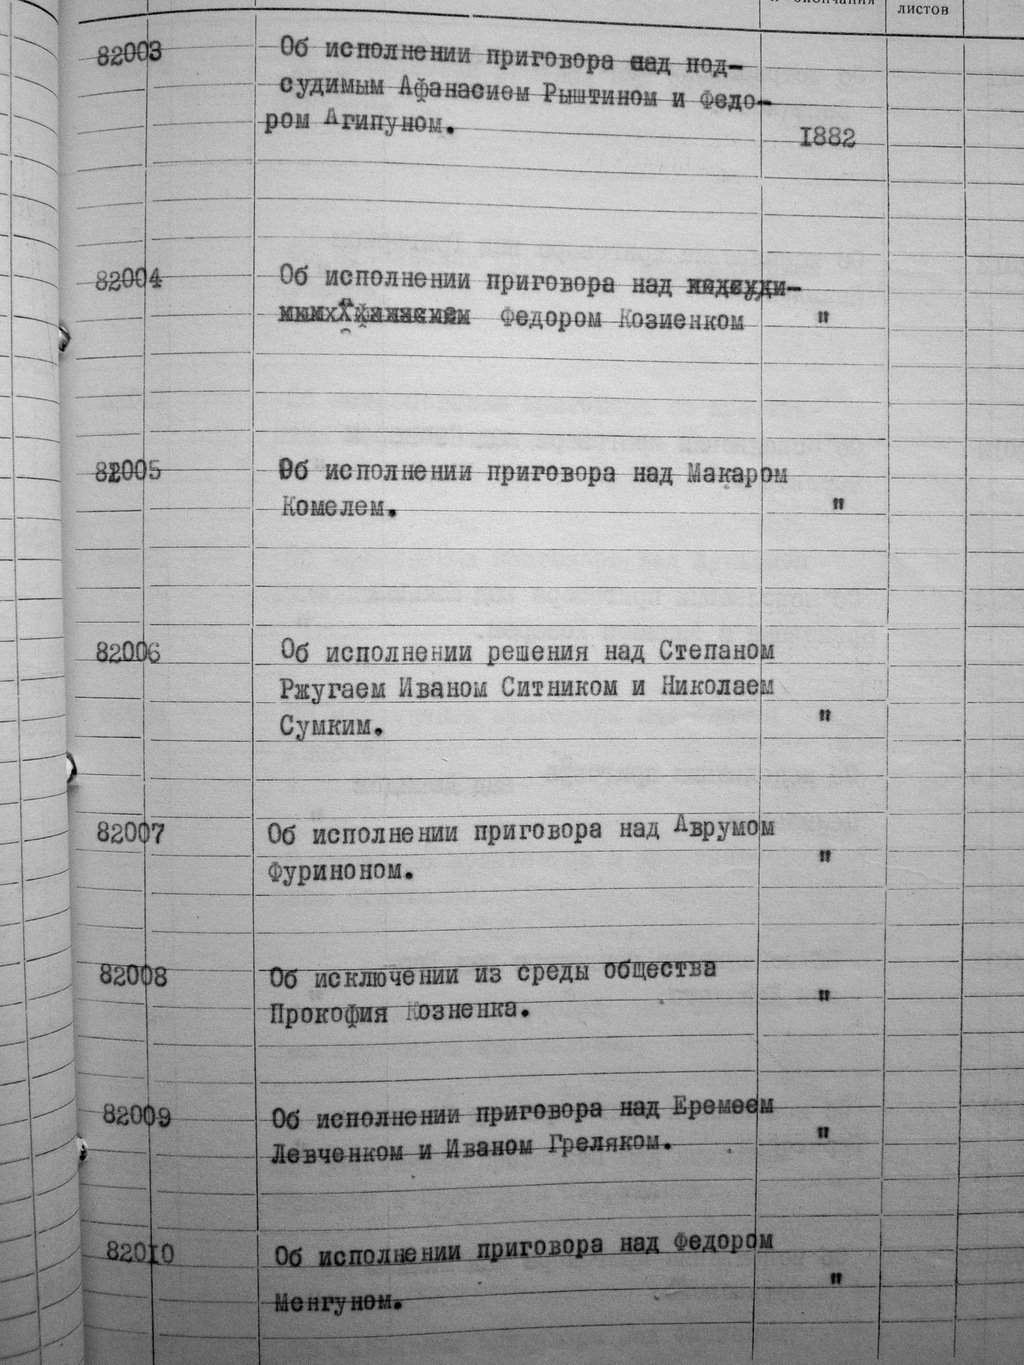 и окончания
листов
82003
Об исполнении приговора над под-
судимым Афанасием Рыштином и Федо-
ром Агипуном.
1882
82004
Об исполнении приговора над подсуди-
Федором Козиенком
"
82005
Об исполнении приговора над Макаром
Комелем.
"
82006
Об исполнении решения над Степаном
Ржугаем Иваном Ситником и Николаем
Сумким.
"
82007
Об исполнении приговора над Аврумом
Фуриноном.
"
82008
Об исключении из среды общества
Прокофия Козненка.
"
82009
Об исполнении приговора над Еремеем
Левченком и Иваном Греляком.
"
82010
Об исполнении приговора над Федором
Менгуном.
"